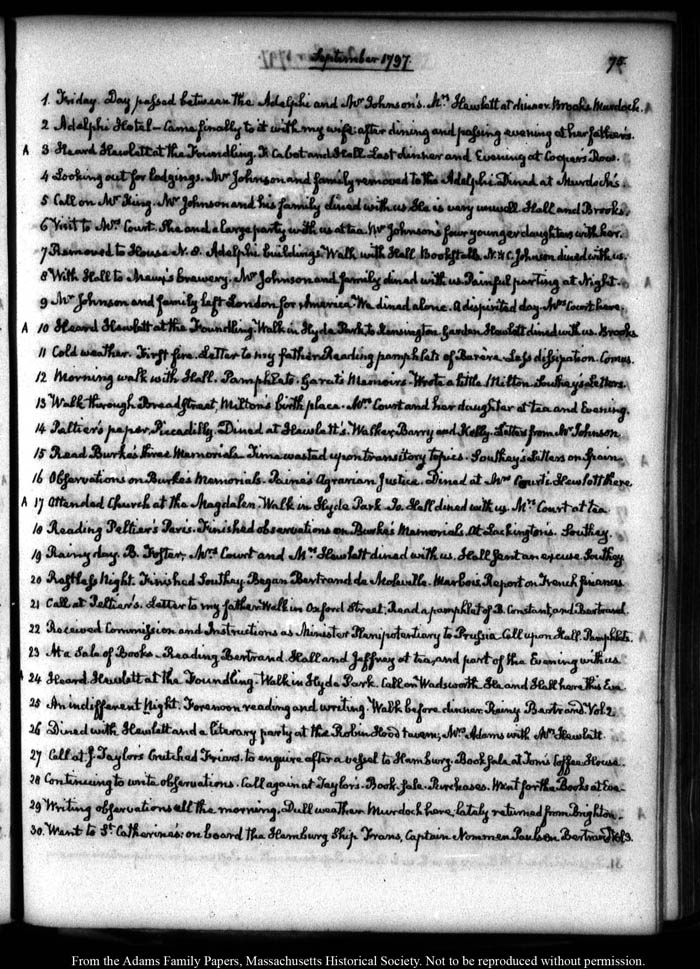 September 1797.
75
1. Friday. Day passed between the Adelphi and Mr Johnson's. Mrs Hewlett at dinner. Brooks. Murdock.
2 Adelphi Hotel — Came finally to it with my wife: after dining and passing evening at her father's.
A 3 Heard Hewlett at the Foundling. F. Cabot and Hall. Last dinner and Evening at Cooper's Row.
4 Looking out for lodgings. Mr Johnson and family removed to the Adelphi. Dined at Murdock's.
5 Call on Mr King. Mr Johnson and his family dined with us. He is very unwell. Hall and Brooks.
6 Visit to Mrs Court. She and a large party with us at tea. Mr Johnson's four younger daughters with her.
7 Removed to House N. 8. Adelphi buildings. Walk with Hall. Bookstalls. N. & C. Johnson dined with us.
8 With Hall to Meux's brewery. Mr Johnson and family dined with us. Painful parting at Night.
9 Mr Johnson and family left London for America. We dined alone. A dispirited day. Mrs Court here.
A 10 Heard Hewlett at the Foundling. Walk in Hyde Park, to Kensington Garden. Hewlett dined with us. Brooks
11 Cold weather. First fire. Letter to my father. Reading pamphlets of Barère. Less dissipation. Comus.
12 Morning walk with Hall. Pamphlets. Garat's Memoirs. Wrote a little. Milton. Southey's Letters.
13 Walk through Breadstreet, Milton's birth place. Mrs Court and her daughter at tea and Evening.
14 Peltier's paper. Piccadilly. Dined at Hewlett's. Walker, Barry and Kelly. Letters from Mr Johnson
15 Read Burke's three Memorials. Time wasted upon transitory topics. Southey's Letters on Spain
16 Observations on Burke's Memorials. Paine's Agrarian Justice. Dined at Mrs Court's. Hewlett there
A 17 Attended Church at the Magdalen. Walk in Hyde Park. Jo. Hall dined with us. Mrs Court at tea
18 Reading Peltier's Paris. Finished observations on Burke's Memorials. At Lackington's. Southey.
19 Rainy day. B. Foster, Mrs Court and Mrs Hewlett dined with us. Hall sent an excuse. Southey
20 Restless Night. Finished Southey. Began Bertrand de Moleville. Marbois Report on French finances
21 Call at Peltier's. Letter to my father. Walk in Oxford Street. Read a pamphlet of B. Constant, and Bertrand.
22 Received Commission and Instructions as Minister Plenipotentiary to Prussia. Call upon Hall. Pamphlets.
23 At a Sale of Books — Reading Bertrand. Hall and Jeffrey at tea, and part of the Evening with us
A 24 Heard Hewlett at the Foundling. Walk in Hyde Park. Call on Wadsworth. He and Hall here this Eve.
25 An indifferent Night. Forenoon reading and writing. Walk before dinner. Rainy. Bertrand. Vol. 2.
26 Dined with Hewlett and a literary party at the Robin Hood tavern; Mrs Adams with Mrs Hewlett.
27 Call at J. Taylors Crutched Friars. to enquire after a vessel to Hamburg. Book sale at Tom's Coffee House.
28 Continuing to write observations. Call again at Taylor's. Book sale. Purchases. Went for the Books at Eve.
29 Writing observations all the morning. Dull weather. Murdock here, lately returned from Brighton.
30. Went to St Catherine's: on board the Hamburg Ship Frans, Captain Nommen Paulsen. Bertrand Vol 3.
From the Adams Family Papers, Massachusetts Historical Society. Not to be reproduced without permission.